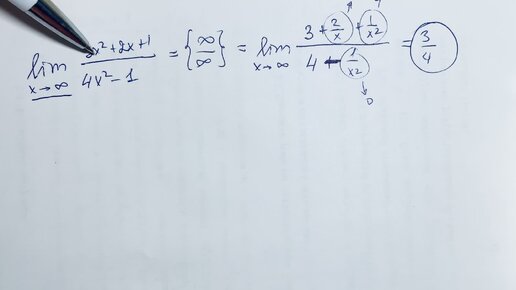 lim x→∞ x²+2x+1 / 4x²-1 = {∞/∞} = lim x→∞ 3+2/x+1/x² / 4-1/x² = 3/4
0